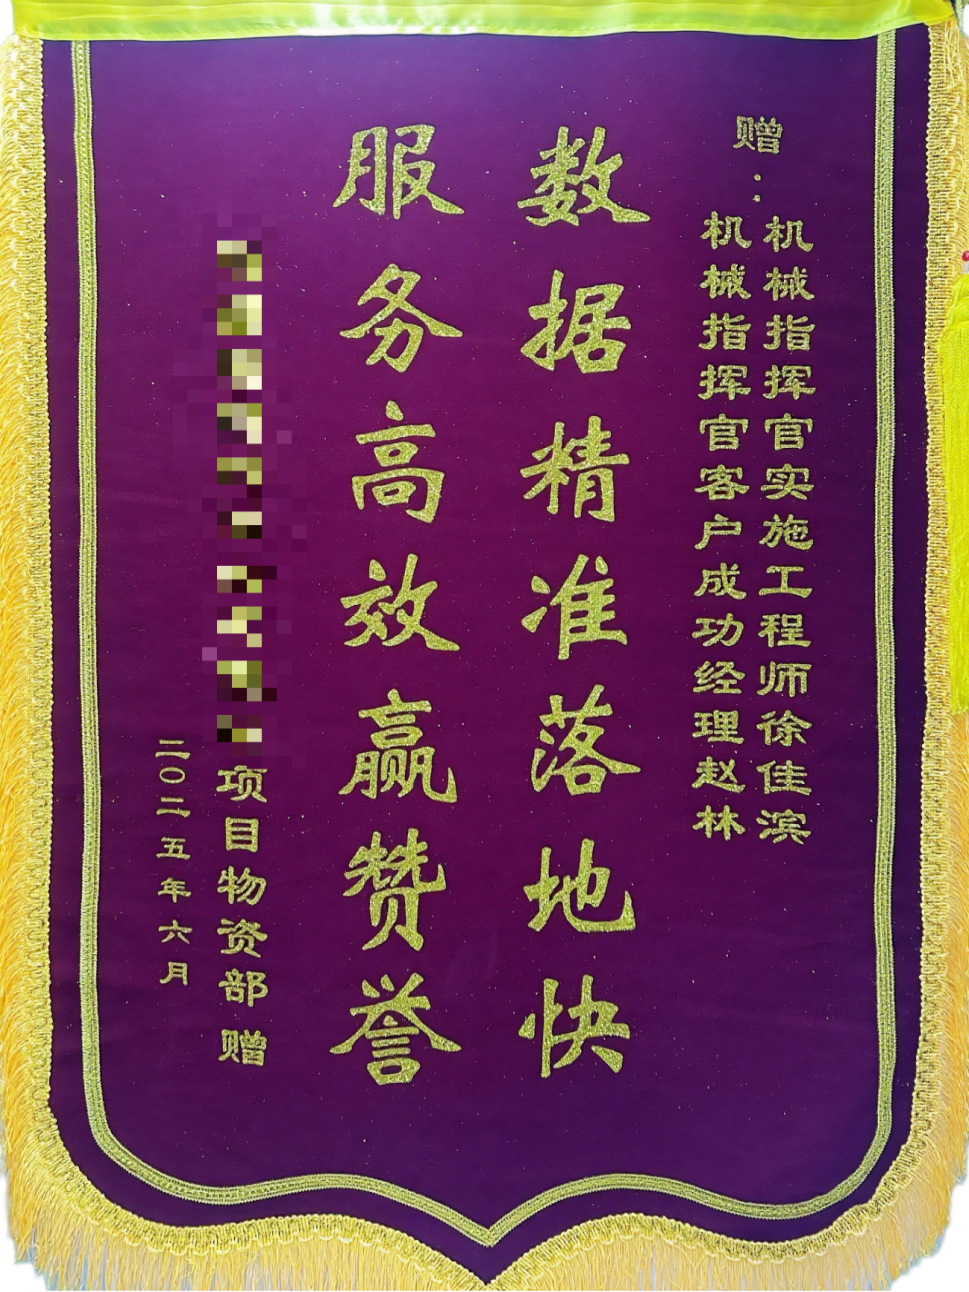 赠：
机械指挥官实施工程师徐佳滨
机械指挥官客户成功经理赵林
数据精准落地快
服务高效赢赞誉
项目物资部 赠
二〇二五年六月